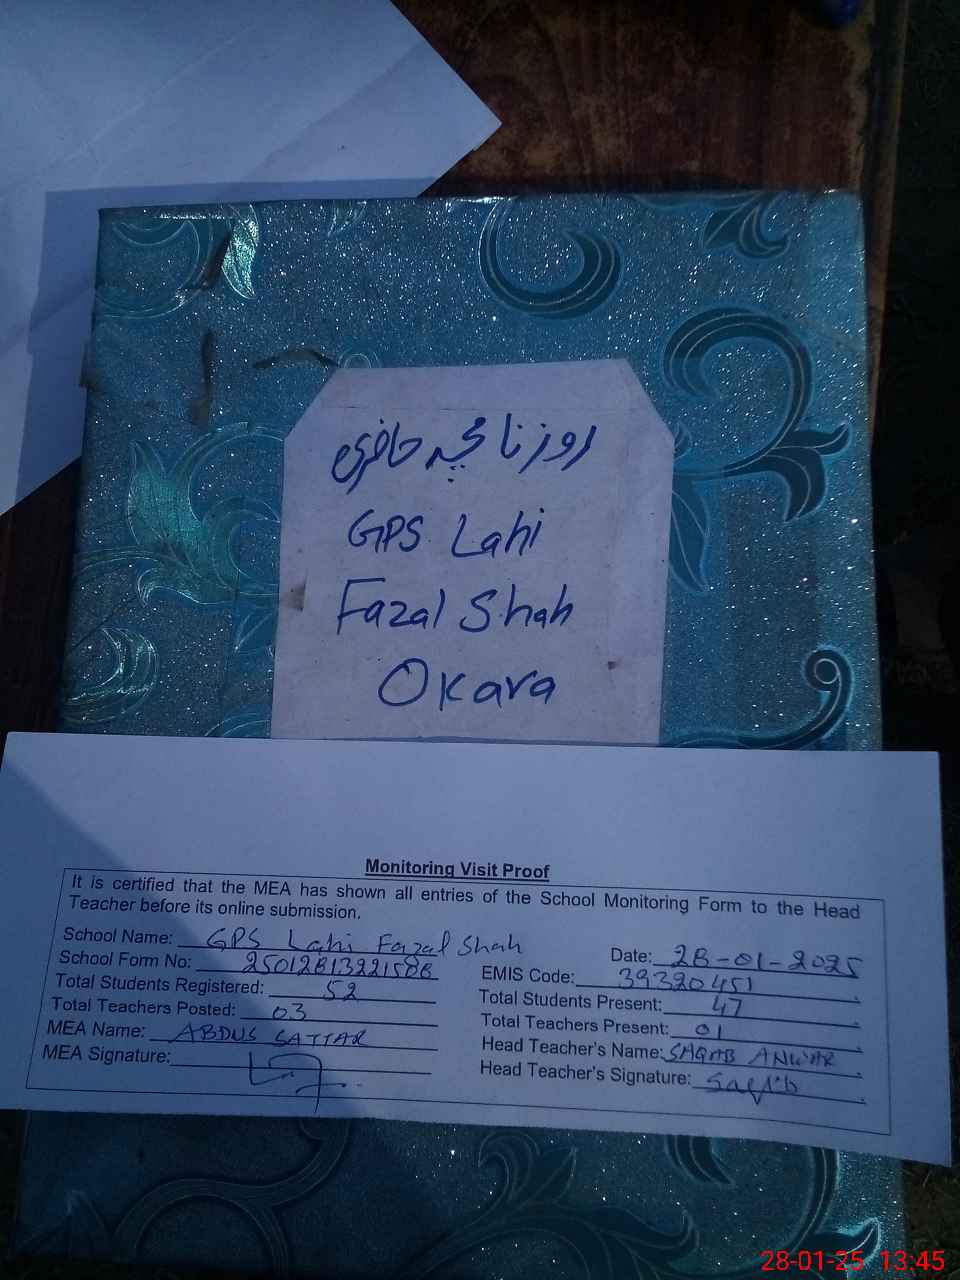 روزنامچہ حاضری
GPS Lahi
Fazal Shah
Okara
Monitoring Visit Proof
It is certified that the MEA has shown all entries of the School Monitoring Form to the Head
Teacher before its online submission.
School Name: GPS Lahi Fazal Shah
Date: 28-01-2025
School Form No: 25012813221508
EMIS Code: 39320451
Total Students Registered: 52
Total Students Present: 47
Total Teachers Posted: 03
Total Teachers Present: 01
MEA Name: ABDUS SATTAR
Head Teacher's Name: SAQAB ANWAR
MEA Signature:
Head Teacher's Signature: Saqib
28-01-25 13:45